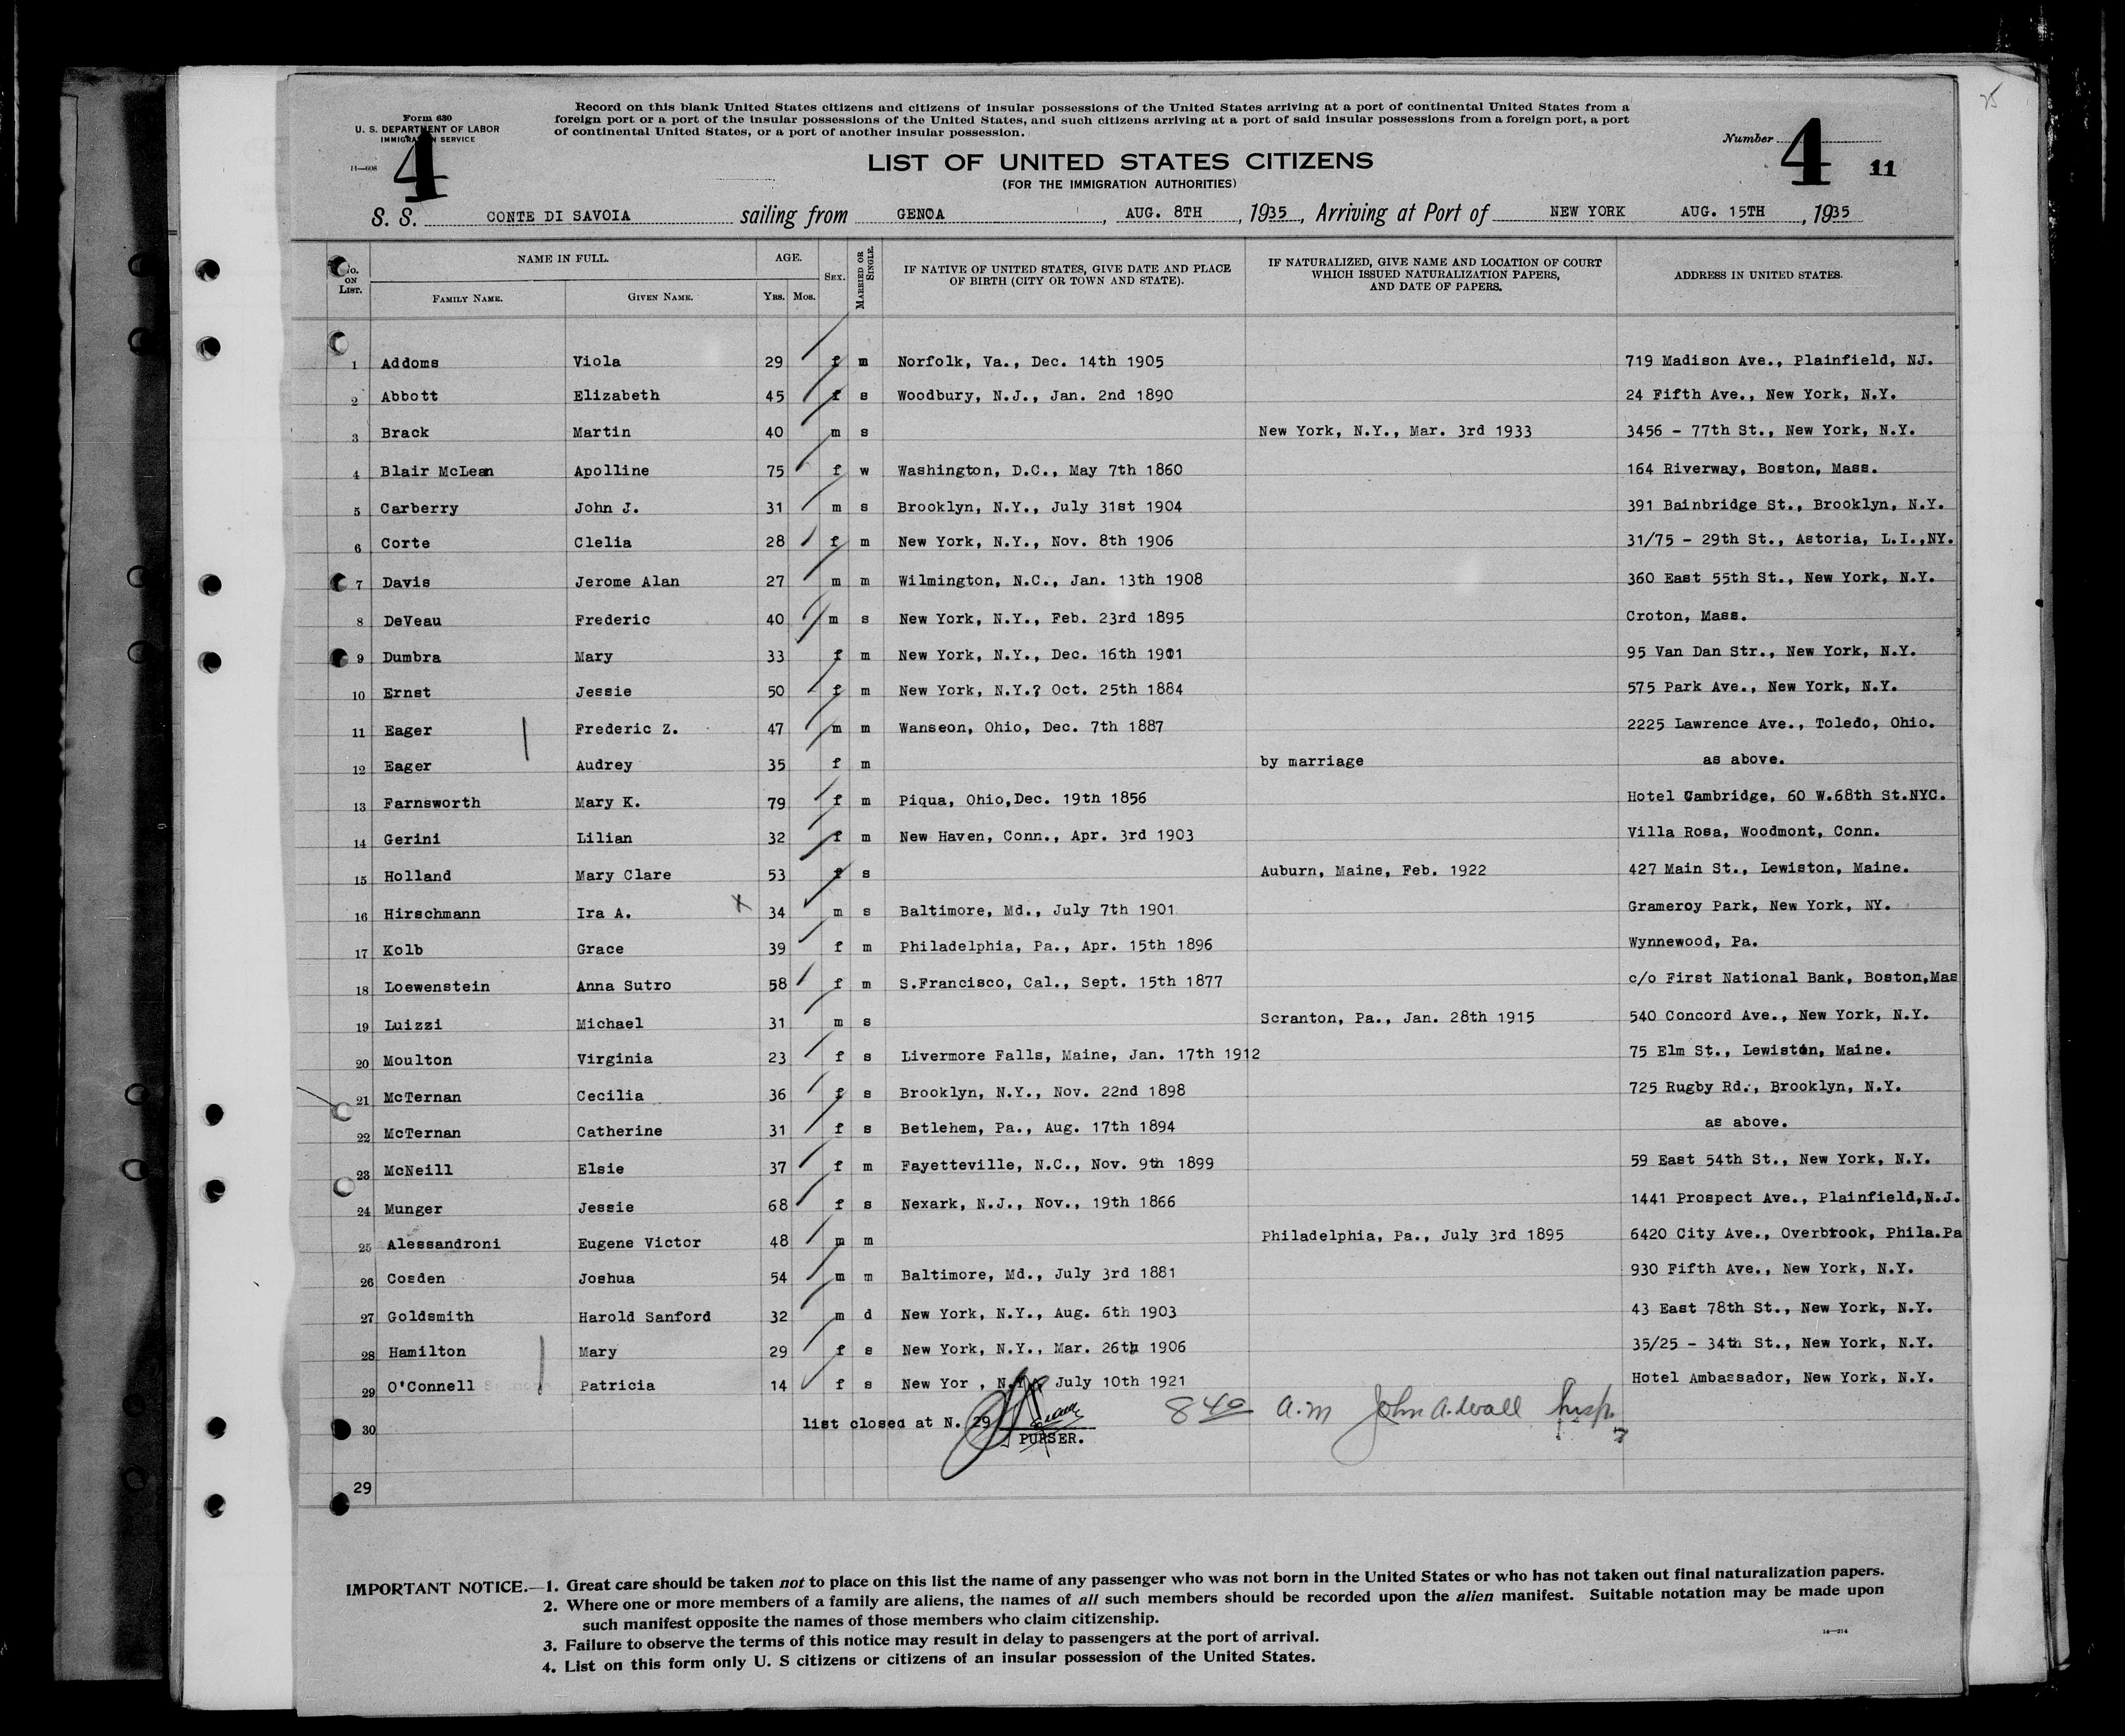 25
Form 630
U. S. DEPARTMENT OF LABOR
IMMIGRATION SERVICE
11—608
4
Record on this blank United States citizens and citizens of insular possessions of the United States arriving at a port of continental United States from a
foreign port or a port of the insular possessions of the United States, and such citizens arriving at a port of said insular possessions from a foreign port, a port
of continental United States, or a port of another insular possession.
Number 4 11
LIST OF UNITED STATES CITIZENS
(FOR THE IMMIGRATION AUTHORITIES)
S. S. CONTE DI SAVOIA sailing from GENOA, AUG. 8TH, 1935, Arriving at Port of NEW YORK AUG. 15TH, 1935
No. ON LIST. NAME IN FULL. FAMILY NAME. GIVEN NAME. AGE. YRS. MOS. SEX. MARRIED OR SINGLE. IF NATIVE OF UNITED STATES, GIVE DATE AND PLACE OF BIRTH (CITY OR TOWN AND STATE). IF NATURALIZED, GIVE NAME AND LOCATION OF COURT WHICH ISSUED NATURALIZATION PAPERS, AND DATE OF PAPERS. ADDRESS IN UNITED STATES.
1 Addoms Viola 29 f m Norfolk, Va., Dec. 14th 1905 719 Madison Ave., Plainfield, NJ.
2 Abbott Elizabeth 45 f s Woodbury, N.J., Jan. 2nd 1890 24 Fifth Ave., New York, N.Y.
3 Brack Martin 40 m s New York, N.Y., Mar. 3rd 1933 3456 - 77th St., New York, N.Y.
4 Blair McLean Apolline 75 f w Washington, D.C., May 7th 1860 164 Riverway, Boston, Mass.
5 Carberry John J. 31 m s Brooklyn, N.Y., July 31st 1904 391 Bainbridge St., Brooklyn, N.Y.
6 Corte Clelia 28 f m New York, N.Y., Nov. 8th 1906 31/75 - 29th St., Astoria, L.I.,NY.
7 Davis Jerome Alan 27 m m Wilmington, N.C., Jan. 13th 1908 360 East 55th St., New York, N.Y.
8 DeVeau Frederic 40 m s New York, N.Y., Feb. 23rd 1895 Croton, Mass.
9 Dumbra Mary 33 f m New York, N.Y., Dec. 16th 1901 95 Van Dan Str., New York, N.Y.
10 Ernst Jessie 50 f m New York, N.Y.? Oct. 25th 1884 575 Park Ave., New York, N.Y.
11 Eager Frederic Z. 47 m m Wanseon, Ohio, Dec. 7th 1887 2225 Lawrence Ave., Toledo, Ohio.
12 Eager Audrey 35 f m by marriage as above.
13 Farnsworth Mary K. 79 f m Piqua, Ohio,Dec. 19th 1856 Hotel Cambridge, 60 W.68th St.NYC.
14 Gerini Lilian 32 f m New Haven, Conn., Apr. 3rd 1903 Villa Rosa, Woodmont, Conn.
15 Holland Mary Clare 53 f s Auburn, Maine, Feb. 1922 427 Main St., Lewiston, Maine.
16 Hirschmann Ira A. x 34 m s Baltimore, Md., July 7th 1901 Grameroy Park, New York, NY.
17 Kolb Grace 39 f m Philadelphia, Pa., Apr. 15th 1896 Wynnewood, Pa.
18 Loewenstein Anna Sutro 58 f m S.Francisco, Cal., Sept. 15th 1877 c/o First National Bank, Boston,Mas
19 Luizzi Michael 31 m s Scranton, Pa., Jan. 28th 1915 540 Concord Ave., New York, N.Y.
20 Moulton Virginia 23 f s Livermore Falls, Maine, Jan. 17th 1912 75 Elm St., Lewiston, Maine.
21 McTernan Cecilia 36 f s Brooklyn, N.Y., Nov. 22nd 1898 725 Rugby Rd., Brooklyn, N.Y.
22 McTernan Catherine 31 f s Betlehem, Pa., Aug. 17th 1894 as above.
23 McNeill Elsie 37 f m Fayetteville, N.C., Nov. 9th 1899 59 East 54th St., New York, N.Y.
24 Munger Jessie 68 f s Nexark, N.J., Nov., 19th 1866 1441 Prospect Ave., Plainfield,N.J.
25 Alessandroni Eugene Victor 48 m m Philadelphia, Pa., July 3rd 1895 6420 City Ave., Overbrook, Phila.Pa
26 Cosden Joshua 54 m m Baltimore, Md., July 3rd 1881 930 Fifth Ave., New York, N.Y.
27 Goldsmith Harold Sanford 32 m d New York, N.Y., Aug. 6th 1903 43 East 78th St., New York, N.Y.
28 Hamilton Mary 29 f s New York, N.Y., Mar. 26th 1906 35/25 - 34th St., New York, N.Y.
29 O'Connell Patricia 14 f s New Yor , N.Y., July 10th 1921 Hotel Ambassador, New York, N.Y.
30 list closed at N. 29 8 40 a.m John A. Wall Insp.
PURSER.
29
IMPORTANT NOTICE.—1. Great care should be taken not to place on this list the name of any passenger who was not born in the United States or who has not taken out final naturalization papers.
2. Where one or more members of a family are aliens, the names of all such members should be recorded upon the alien manifest. Suitable notation may be made upon
such manifest opposite the names of those members who claim citizenship.
3. Failure to observe the terms of this notice may result in delay to passengers at the port of arrival.
4. List on this form only U. S citizens or citizens of an insular possession of the United States.
14—214